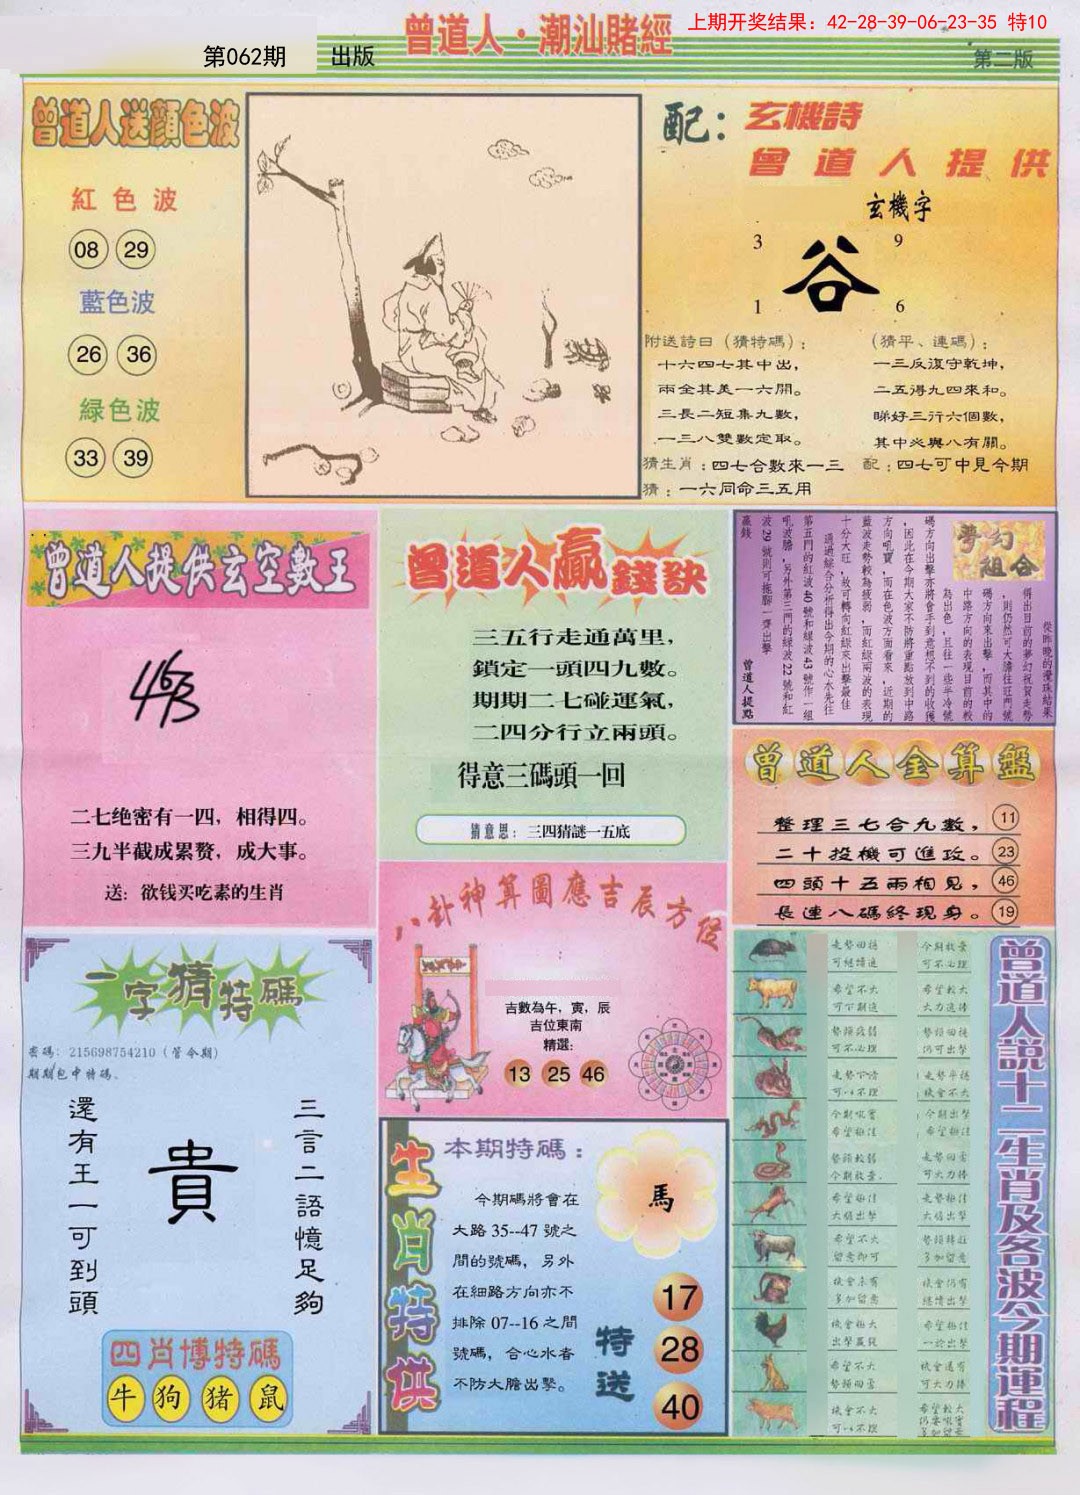 上期开奖结果：42-28-39-06-23-35 特10
曾道人·潮汕賭經
第062期 出版
第二版
曾道人送顔色波
紅色波
08 29
藍色波
26 36
緑色波
33 39
配：玄機詩
曾道人提供
玄機字
3 9
谷
1 6
附送詩曰（猜特碼）：
十六四七其中出，
兩全其美一六開。
三長二短集九數，
一三八雙數定取。
猜生肖：四七合數來一三
猜：一六同命三五用
（猜平、連碼）：
一三反復守乾坤，
二五得九四來和。
睇好三行六個數，
其中必與八有關。
配：四七可中見今期
曾道人提供玄空數王
463
二七绝密有一四，相得四。
三九半截成累赘，成大事。
送：欲钱买吃素的生肖
曾道人贏錢訣
三五行走通萬里，
鎖定一頭四九數。
期期二七碰運氣，
二四分行立兩頭。
得意三碼頭一回
猜意思：三四猜謎一五底
夢幻組合
從昨晚的攪珠結果
得出目前的夢幻祝賀走勢
，則仍然可大膽往旺門號
碼方向來出擊，而其中的
中路方向的表現目前的較
為出色，且往一些半冷號
碼方向出擊亦將會手到意想不到的收獲
，因此在今期大家不防將重點放到中路
方向吼寶，而在色波方面看來，近期的
藍波走勢較為疲弱，而紅綠兩波的表現
十分大旺，故可轉向紅綠來出擊最佳
通過綜合分析得出今期的心水先往
第五門的紅波40號和綠波43號作一組
吼波膽，另外第三門的綠波22號和紅
波29號則可拖腳一齊出擊
贏錢
曾道人提點
曾道人金算盤
整理三七合九數， 11
二十投機可進攻。 23
四頭十五兩相見， 46
長連八碼終現身。 19
八卦神算圖應吉辰方位
吉數為午，寅，辰
吉位東南
精選：
13 25 46
一字猜特碼
密碼：215698754210（管今期）
期期包中特碼、
三言二語憶足夠
貴
還有王一可到頭
四肖博特碼
牛 狗 猪 鼠
生肖特供
本期特碼：
今期碼將會在
大路35--47號之
間的號碼，另外
在細路方向亦不
排除07--16之間
號碼，合心水者
不防大膽出擊。
馬
特送
17
28
40
曾道人説十二生肖及各波今期運程